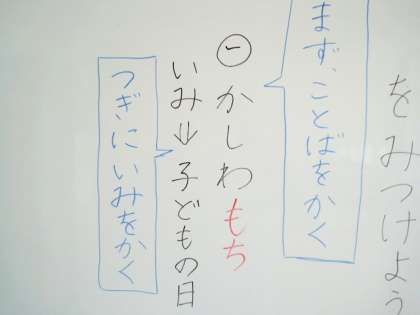 をみつけよう
まず、ことばをかく
㊀かしわもち
いみ→子どもの日
つぎにいみをかく